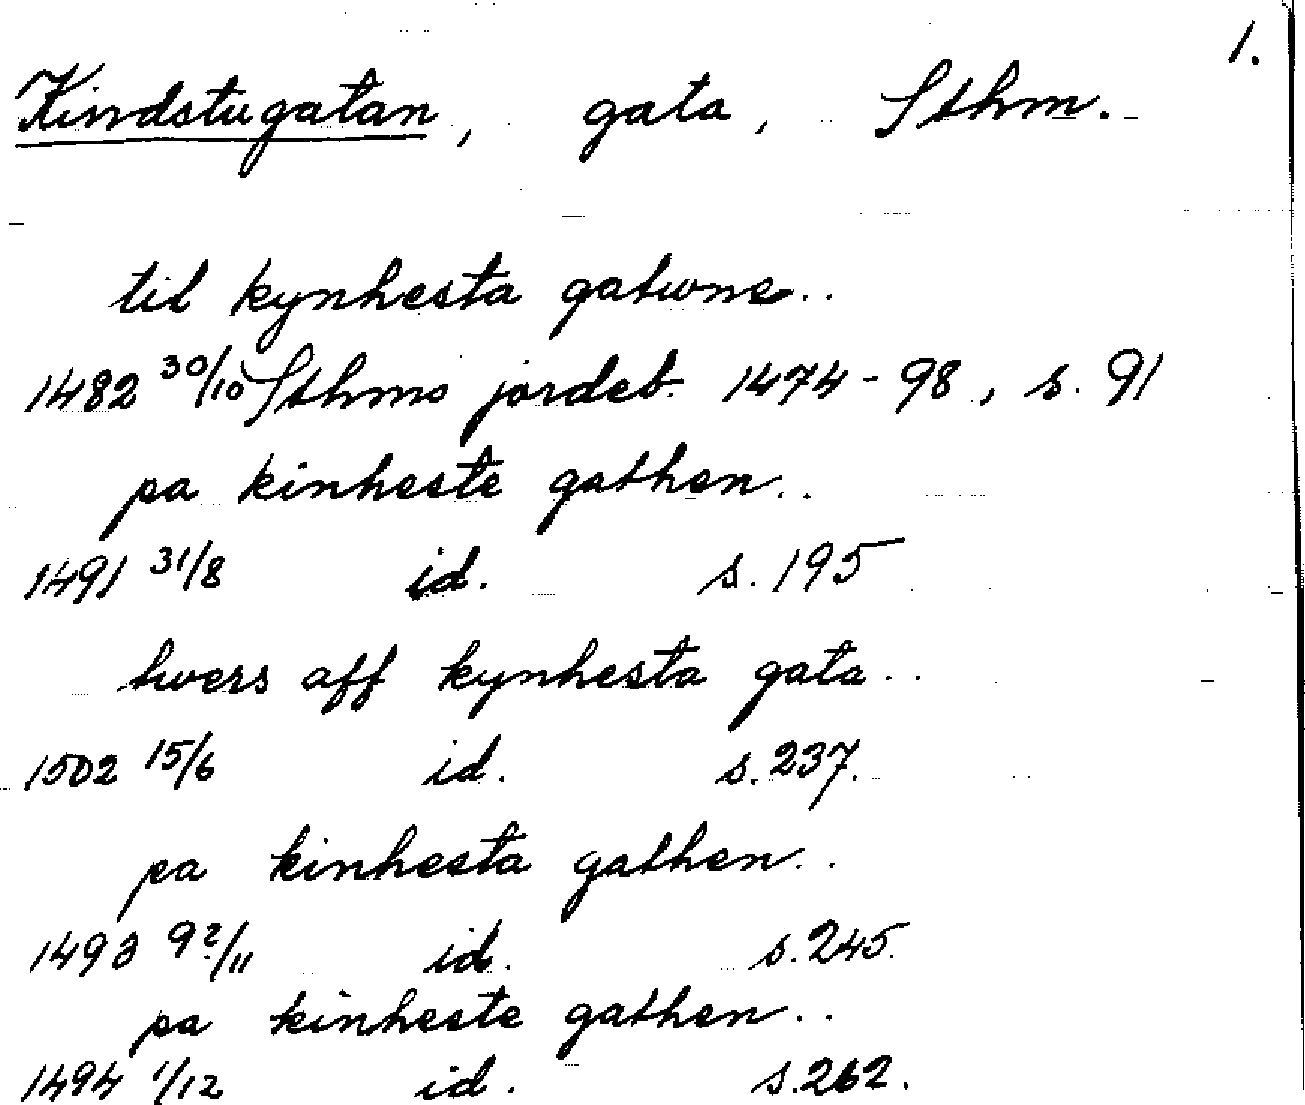 1.
Kindstugatan, gata, Sthm.
til kynhesta gatwne..
1482 30/10 Sthms jordeb. 1474-98, s. 91
pa kinheste gathen..
1491 31/8 id. s. 195
twers aff kynhesta gata..
1502 15/6 id. s. 237.
pa kinhesta gathen..
1493 9?/11 id. s. 245.
pa kinheste gathen..
1494 1/12 id. s. 262.